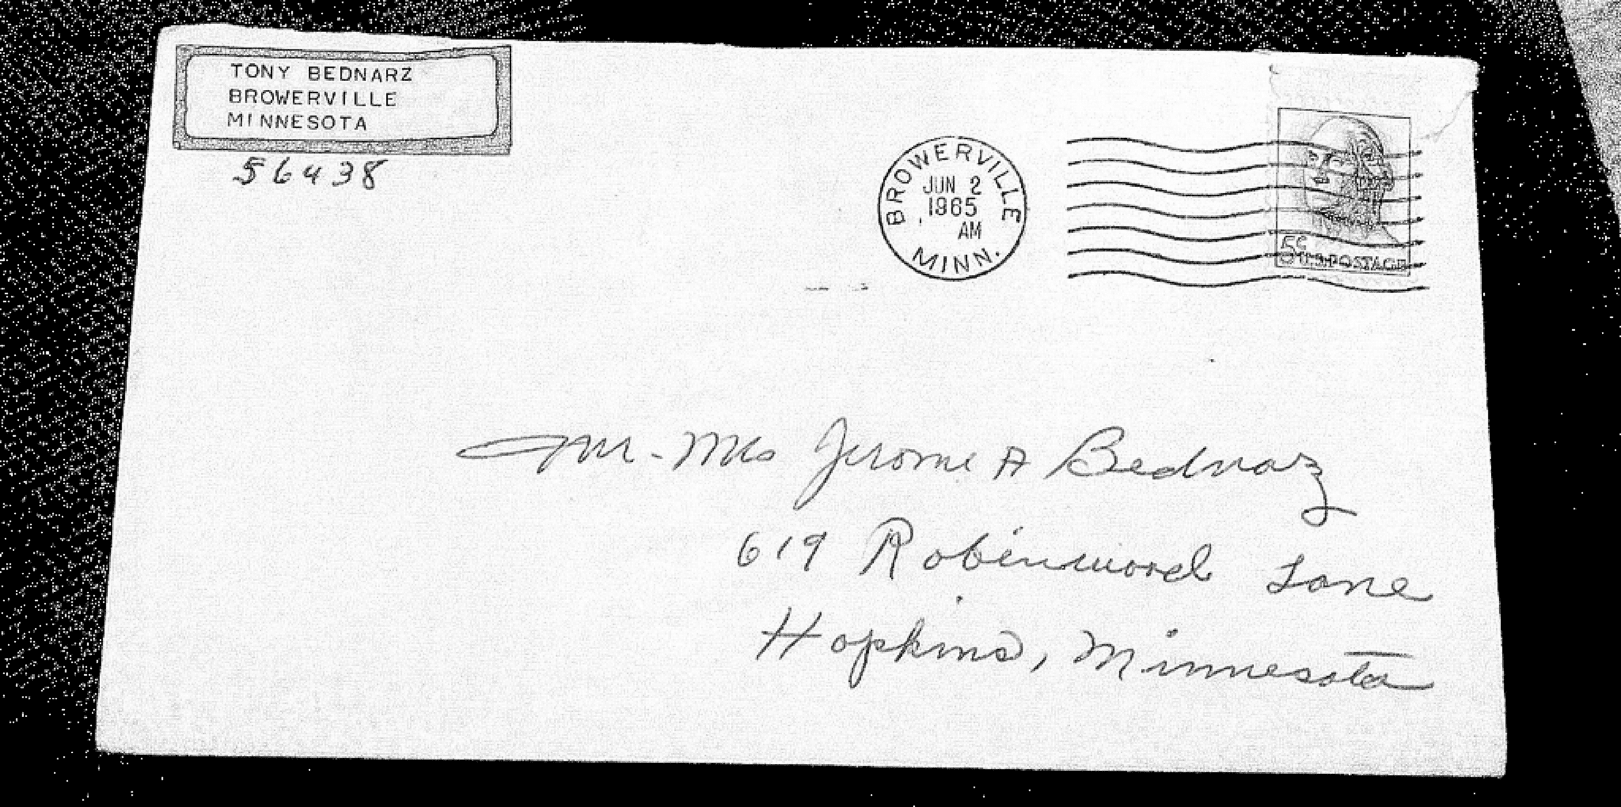 TONY BEDNARZ
BROWERVILLE
MINNESOTA
56438
BROWERVILLE
JUN 2
1965
AM
MINN.
5¢
U.S. POSTAGE
Mr. Mrs Jerome A Bednarz
619 Robinwood Lane
Hopkins, Minnesota